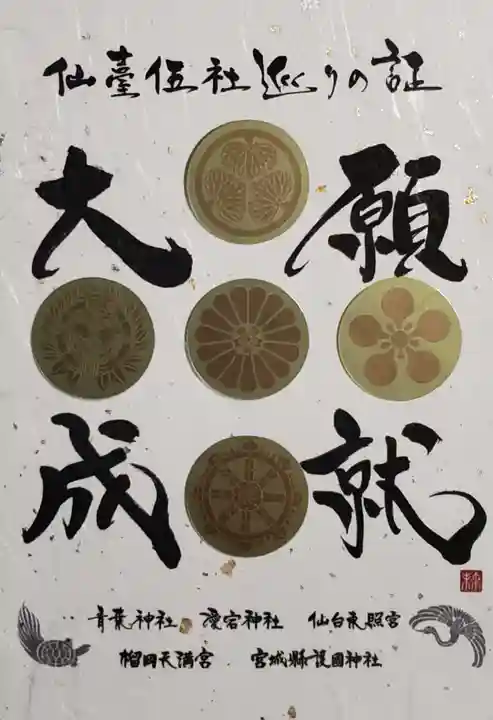 仙臺伍社巡りの証
大願
成就
青葉神社 愛宕神社 仙台東照宮
榴岡天満宮 宮城縣護國神社